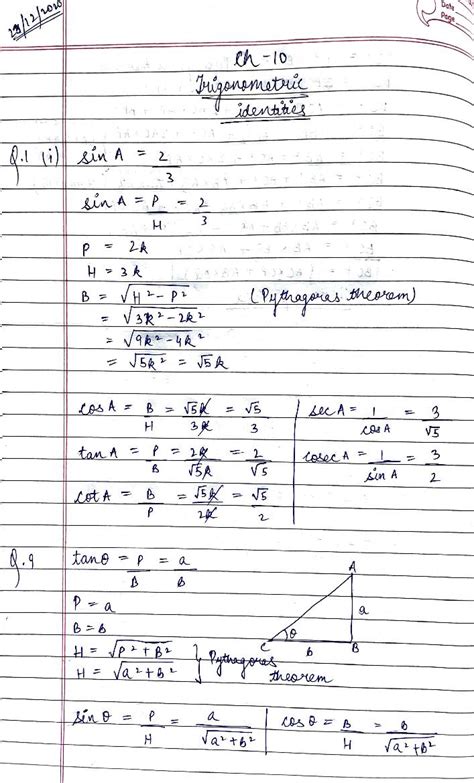 29/12/2020
Date
Page
Ch - 10
Trigonometric
identities
Q.1 (i) sin A = 2/3
sin A = P/H = 2/3
P = 2k
H = 3k
B = √H² - P² (Pythagoras theorem)
= √3k² - 2k²
= √9k² - 4k²
= √5k² = √5k
cos A = B/H = √5k/3k = √5/3 sec A = 1/cos A = 3/√5
tan A = P/B = 2k/√5k = 2/√5 cosec A = 1/sin A = 3/2
cot A = B/P = √5k/2k = √5/2
Q.9 tan θ = P/B = a/b
P = a
B = b
H = √P² + B² } Pythagoras
H = √a² + b² theorem
A
a
C θ b B
sin θ = P/H = a/√a² + b² cos θ = B/H = b/√a² + b²